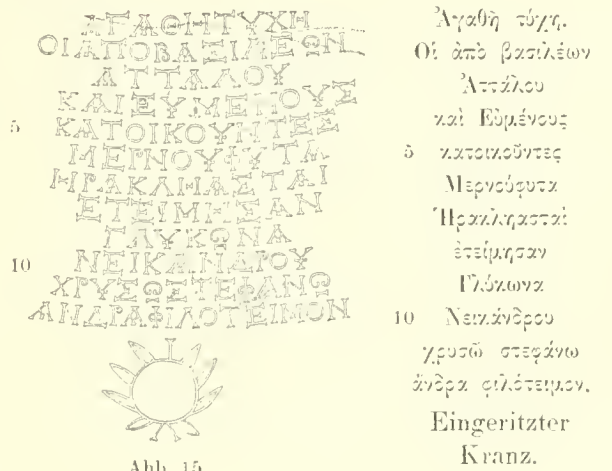 ΑΓΑΘΗΤΥΧΗ
ΟΙΑΠΟΒΑΣΙΛΕΩΝ
ΑΤΤΑΛΟΥ
ΚΑΙΕΥΜΕΝΟΥΣ
5 ΚΑΤΟΙΚΟΥΝΤΕΣ
ΜΕΡΝΟΥΦΥΤΑ
ΗΡΑΚΛΗΑΣΤΑΙ
ΕΤΕΙΜΗΣΑΝ
ΓΛΥΚΩΝΑ
10 ΝΕΙΚΑΝΔΡΟΥ
ΧΡΥΣΩΣΤΕΦΑΝΩ
ΑΝΔΡΑΦΙΛΟΤΕΙΜΟΝ
Abb. 15
Ἀγαθὴ τύχη.
Οἱ ἀπὸ βασιλέων
Ἀττάλου
καὶ Εὐμένους
5 κατοικοῦντες
Μερνούφυτα
Ἡρακληασταὶ
ἐτείμησαν
Γλύκωνα
10 Νεικάνδρου
χρυσῶ στεφάνω
ἄνδρα φιλότειμον.
Eingeritzter
Kranz.